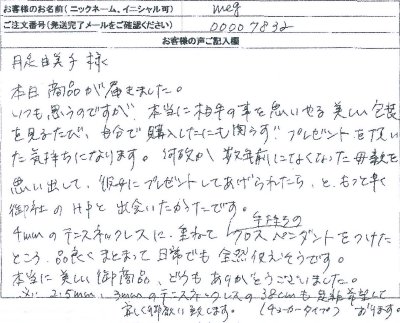 お客様のお名前(ニックネーム、イニシャル可)　meg
ご注文番号(発送完了メールをご確認ください)　00007832
お客様の声ご記入欄
様
本日商品が届きました。
いつも思うのですが、本当に相手の事を思いやる美しい包装
を見るたび、自分で購入したにも関らず プレゼントを頂い
た気持ちになります。何故か 数年前に亡くなった母親を
思い出して、彼女にプレゼントしてあげられたら、と、もっと早く
御社のHPと出会いたかったです。
4mmのテニスネックレスに、重ねて 手持ちの クロスペンダントをつけた
ところ、品良くまとまって日常でも全然使えそうです。
本当に美しい御商品、どうもありがとうございました。
※ 2.5mm、3mmのテニスネックレスの38cmも是非希望して
おります。
宜しく御願い致します。(チョーカータイプ)